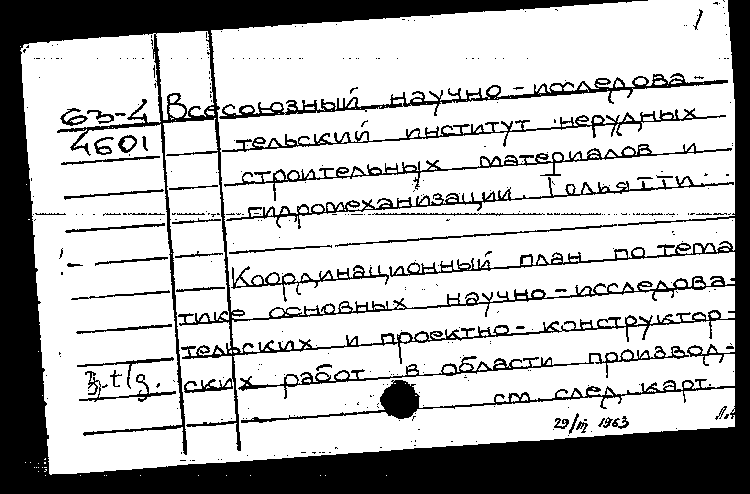 1
63-4 Всесоюзный научно-исследова-
4601 тельский институт нерудных
строительных материалов и
гидромеханизации. Тольятти.
Координационный план по тема
тике основных научно-исследова-
тельских и проектно-конструктор-
ских работ в области производ-
см. след. карт.
29/III 1963